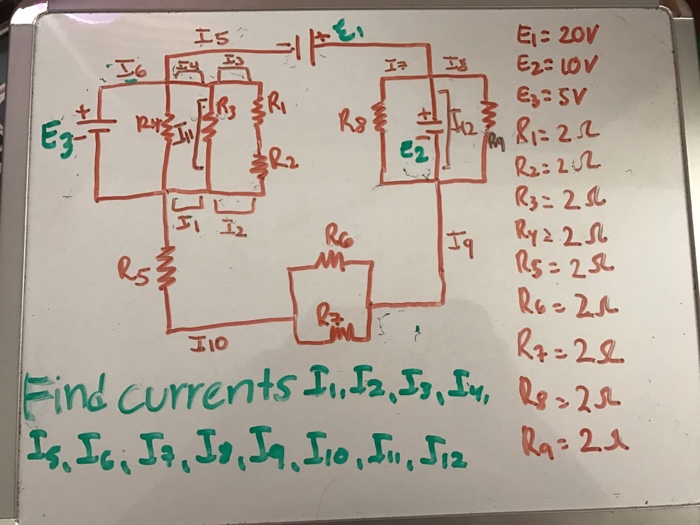 I5
- + E1
I6 I4 I3 I7 I8
+ E3 -
R4 I11 R3 R1
R2
R8 + E2 - I12 R9
I1 I2
R5
R6
R7
I9
I10
E1 = 20V
E2 = 10V
E3 = 5V
R1 = 2Ω
R2 = 2Ω
R3 = 2Ω
R4 = 2Ω
R5 = 2Ω
R6 = 2Ω
R7 = 2Ω
R8 = 2Ω
R9 = 2Ω
Find currents I1, I2, I3, I4,
I5, I6, I7, I8, I9, I10, I11, I12